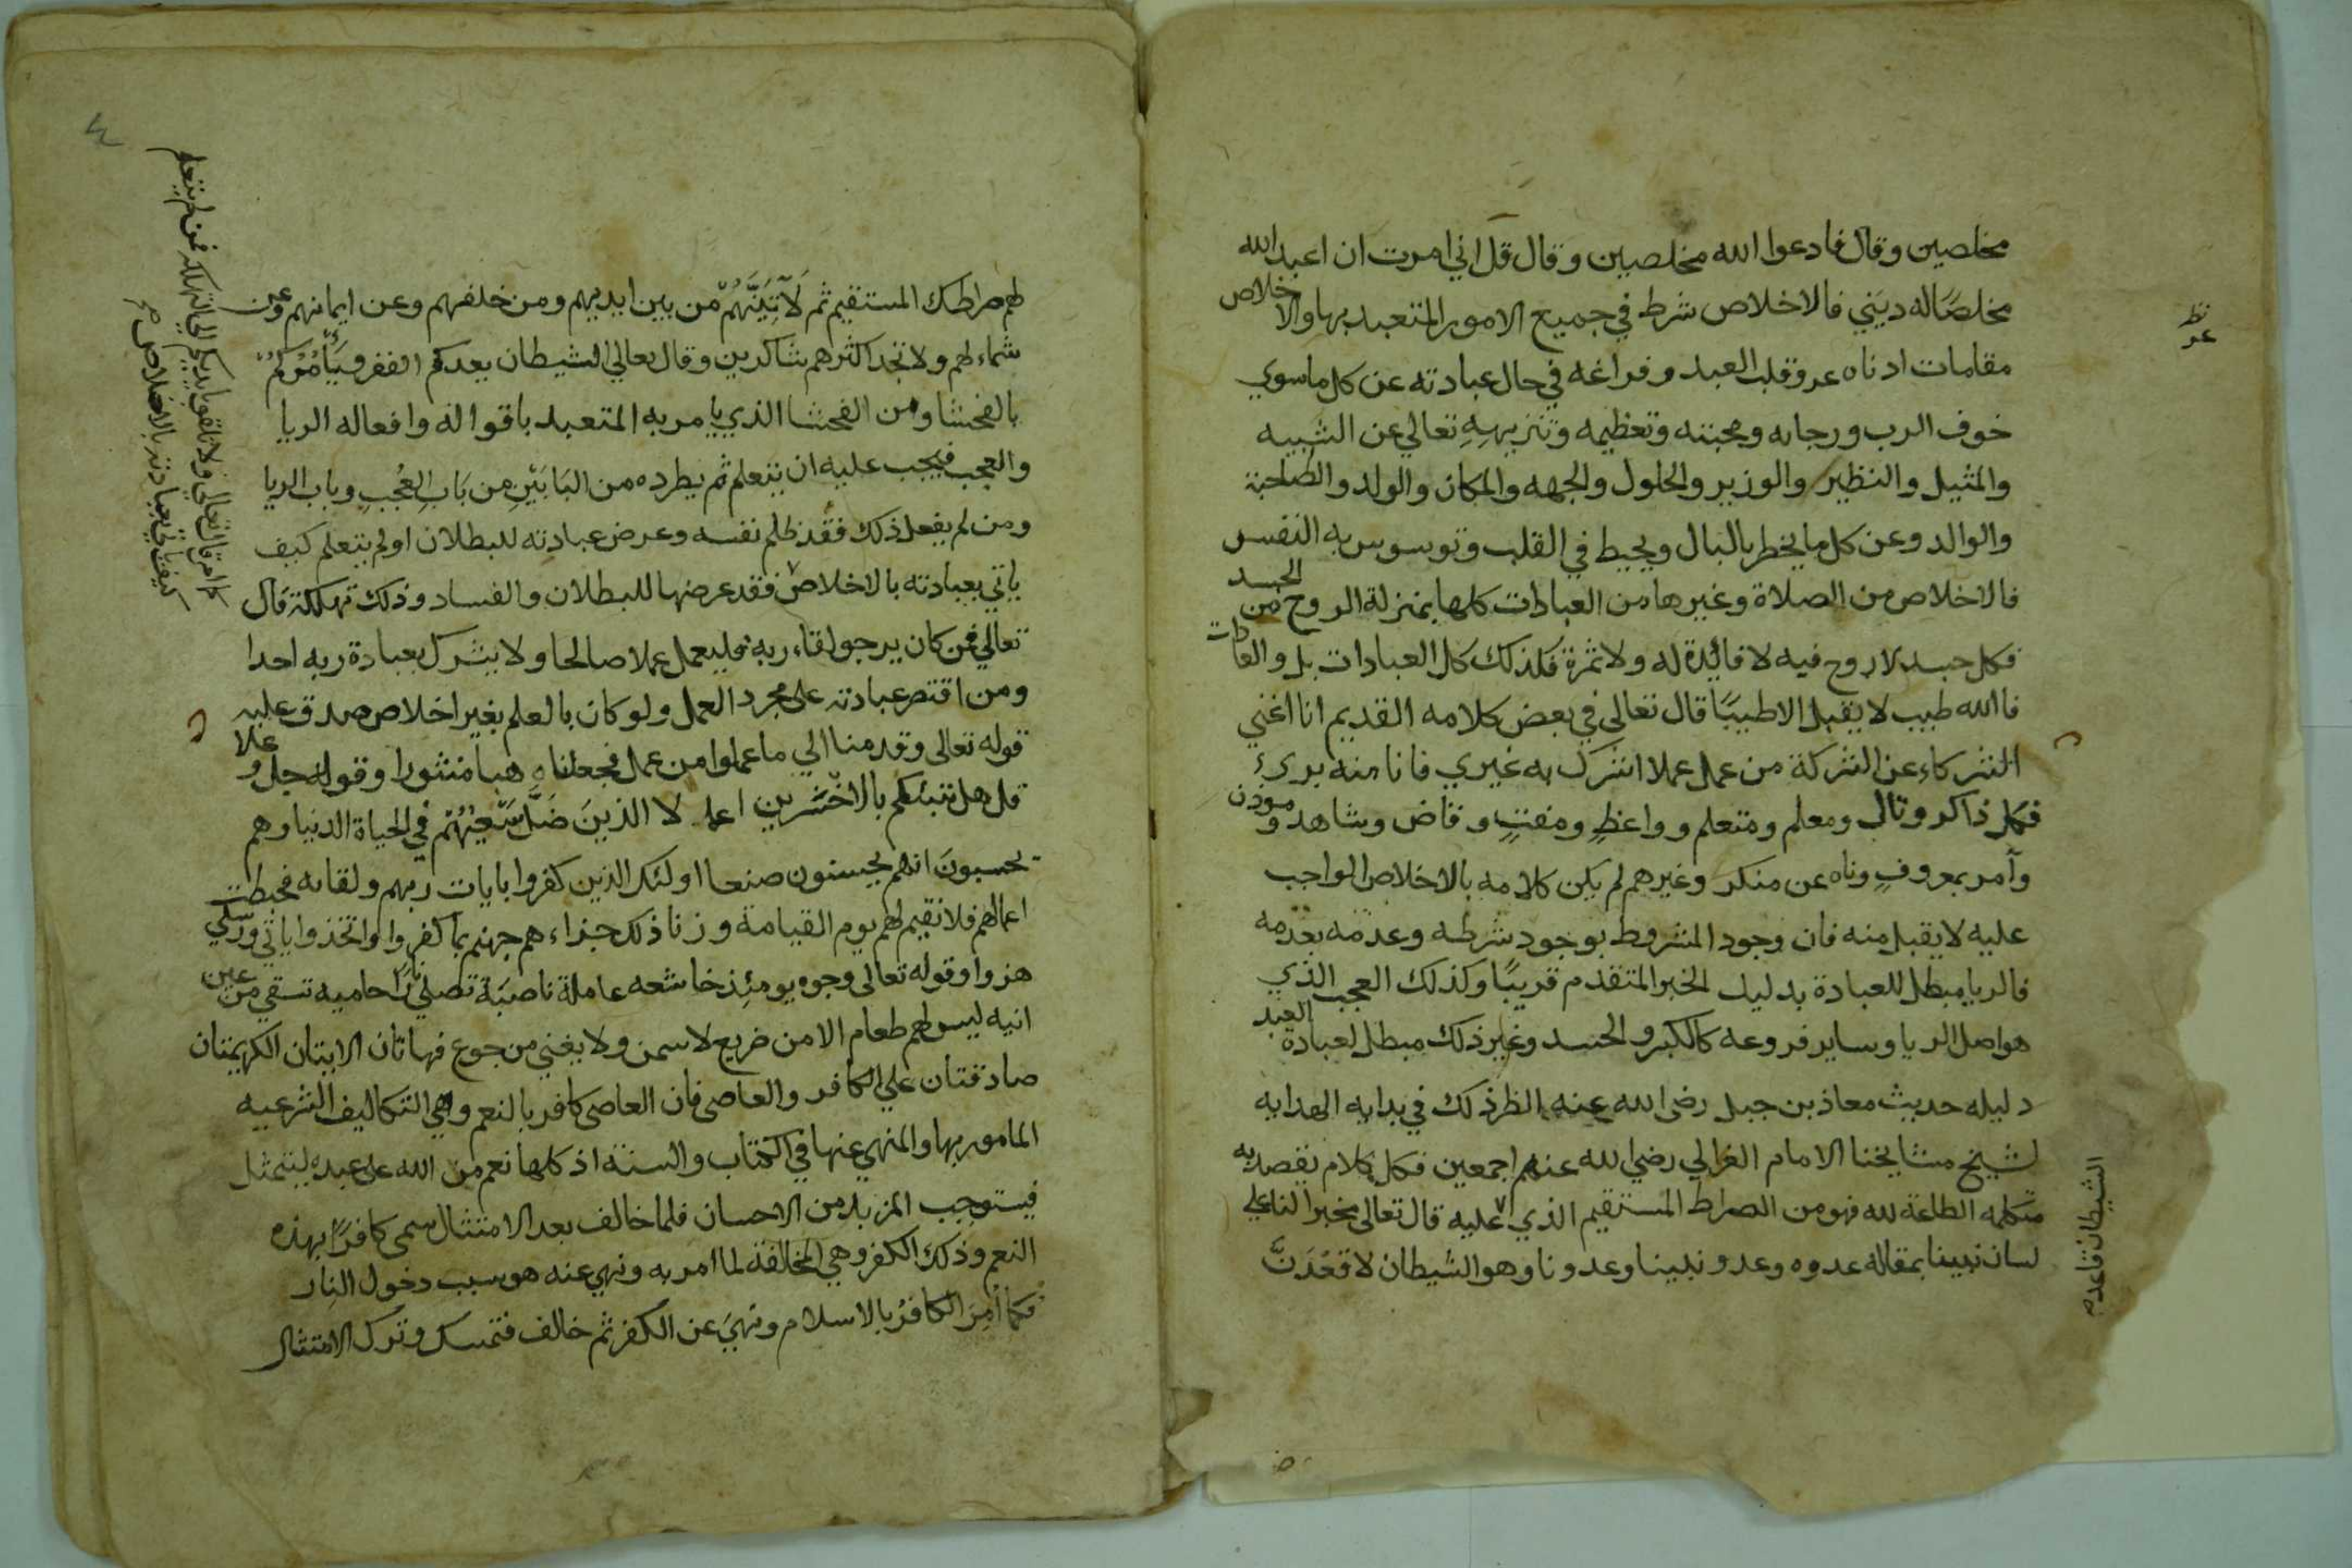 مخلصين وقال فادعوا الله مخلصين وقال قل اني امرت ان اعبد الله
مخلصًا له ديني فالاخلاص شرط في جميع الامور المتعبد بها والاخلاص
مقامات ادناه عرو قلب العبد وفراغه في حال عبادته عن كل ما سوي
خوف الرب ورجائه ومحبته وتعظيمه وتنزيههِ تعالي عن الشبيه
والمثيل والنظير والوزير والحلول والجهه والمكان والولد والصاحبة
والوالد وعن كل ما يخطر بالبال ويحيط في القلب وتوسوس به النفس
فالاخلاص من الصلاة وغيرها من العبادات كلها بمنزلة الروح من الجسد
فكل جسد لا روح فيه لا فائدة له ولا ثمرة فكذلك كل العبادات بل والعادات
فاالله طيب لا يقبل الا طيبًا قال تعالى في بعض كلامه القديم انا اغني
الشركاء عن الشركة من عمل عملا اشرك به غيري فانا منه بريء
فكل ذاكر وتال ومعلم ومتعلم وواعظٍ ومفتٍ وقاض وشاهد ومؤذن
وآمر بمعروفٍ وناه عن منكر وغيرهم لم يكن كلامه بالاخلاص الواجب
عليه لا يقبل منه فان وجود المشروط بوجود شرطه وعدمه بعدمه
فالريا مبطل للعبادة بدليل الخبر المتقدم قريبًا وكذلك العجب الذي
هو اصل الريا وساير فروعه كالكبر والحسد وغير ذلك مبطل لعبادة العبد
دليله حديث معاذ بن جبل رضى الله عنه انظر ذلك في بدايه الهدايه
لشيخ مشايخنا الامام الغزالي رضي الله عنهم اجمعين فكل كلام يقصد به
متكلمه الطاعة لله فهو من الصراط المستقيم الذي عليه قال تعالى مخبرا لنا على
لسان نبينا بمقاله عدوه وعدو نبينا وعدونا وهو الشيطان لاقعُدَنَّ
الشيطان قاعد
لهم صراطك المستقيم ثم لَآتِيَنَّهُمْ من بين ايديهم ومن خلفهم وعن ايمانهم وعن
شمائلهم ولا تجد اكثرهم شاكرين وقال تعالي الشيطان يعدكم الفقر ويَأْمُرُكُمْ
بالفحشا ومن الفحشا الذي يامر به المتعبد باقواله وافعاله الريا
والعجب فيجب عليه ان يتعلم ثم يطرده من البَابَيْنِ من بَابِ العُجْبِ وباب الريا
ومن لم يفعل ذلك فقد ظلم نفسه وعرض عبادته للبطلان او لم يتعلم كيف
ياتي بعبادته بالاخلاص فقد عرضها للبطلان والفساد وذلك تهلكة قال
تعالي فمن كان يرجو لقاء ربه فليعمل عملا صالحا ولا يشرك بعبادة ربه احدا
ومن اقتصر عبادته على مجرد العمل ولو كان بالعلم بغير اخلاص صدق عليه
قوله تعالى وقدمنا الي ما عملوا من عمل فجعلناه هبا منثورا وقوله جل وعلا
قل هل ننبئكم بالاخْسَرين اعمالا الذينَ ضَلَّ سَعْيُهُمْ في الحياة الدنيا وهم
يحسبونَ انهم يحسنون صنعا اولئك الذين كفروا بايات ربهم ولقائه فحبطت
اعمالهم فلا نقيم لهم يوم القيامة وزنا ذلك جزاءهم جهنم بما كفروا واتخذوا اياتي ورسلي
هزوا وقوله تعالى وجوه يومئِذ خاشعه عاملة ناصبَة تصلي نارًا حاميه تسقي من عين
انيه ليس لهم طعام الا من ضريع لا يسمن ولا يغني من جوع فهاتان الايتان الكريمتان
صادقتان علي الكافر والعاصى فان العاصى كافر بالنعم وهي التكاليف الشرعيه
المامور بها والمنهي عنها في الكتاب والسنة اذ كلها نعم من الله على عبده ليتمثل
فيستوجب المزيد من الاحسان فلما خالف بعد الامتثال سمى كافرًا بهذه
النعم وذلك الكفر وهي المخالفة لما امر به ونهي عنه هو سبب دخول النار
فكما أُمِرَ الكافرُ بالاسلام ونهيَ عن الكفر ثم خالف فتمسك وترك الامتثال
قال تعالى ولا تلقوا بايديكم الى التهلكة فمن لم يتعلم
كيف ياتي بعبادته بالاخلاص